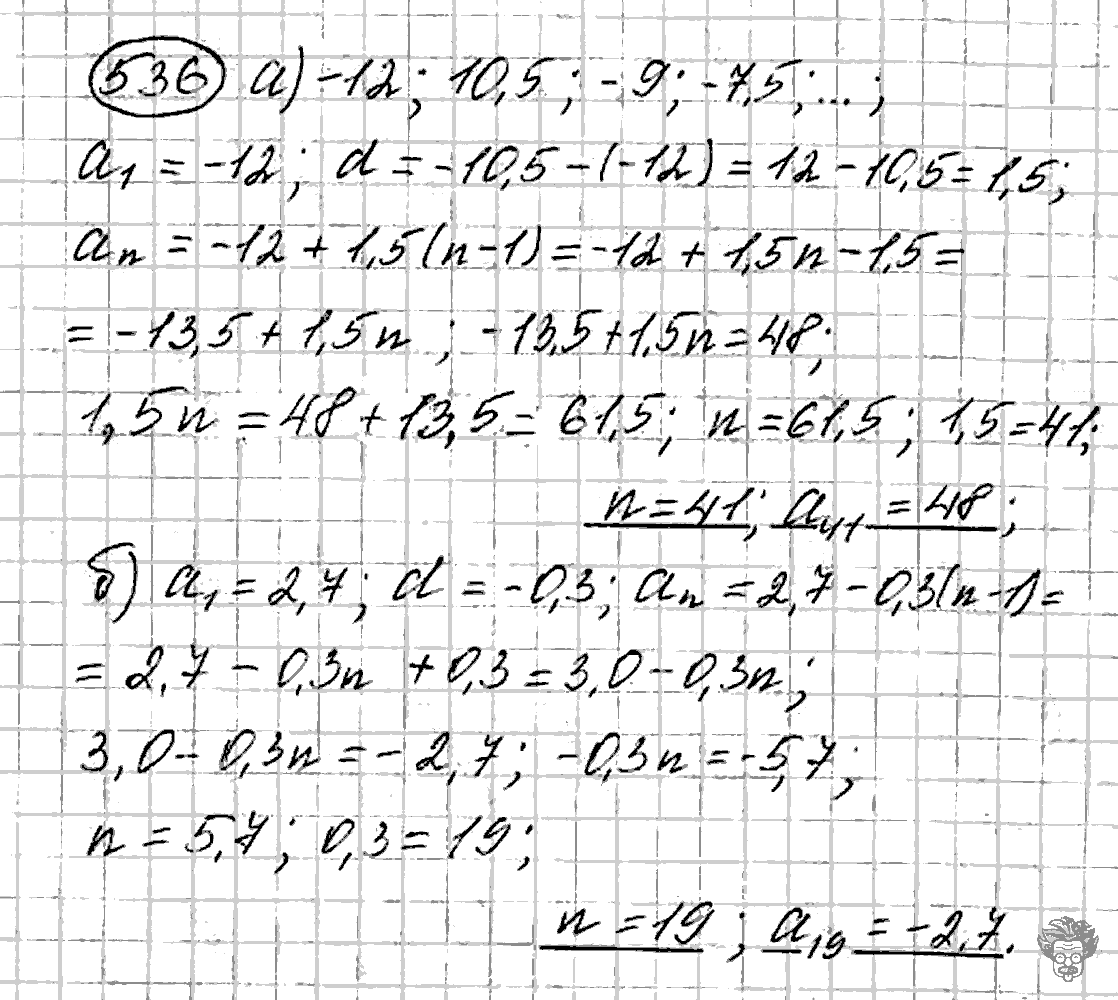 536 а) -12; 10,5; -9; -7,5; ...;
a₁ = -12; d = -10,5 - (-12) = 12 - 10,5 = 1,5;
aₙ = -12 + 1,5(n-1) = -12 + 1,5n - 1,5 =
= -13,5 + 1,5n ; -13,5 + 1,5n = 48;
1,5n = 48 + 13,5 = 61,5; n = 61,5 ; 1,5 = 41;
n = 41; a₄₁ = 48;
б) a₁ = 2,7; d = -0,3; aₙ = 2,7 - 0,3(n-1) =
= 2,7 - 0,3n + 0,3 = 3,0 - 0,3n;
3,0 - 0,3n = -2,7; -0,3n = -5,7;
n = 5,7; 0,3 = 19;
n = 19 ; a₁₉ = -2,7.